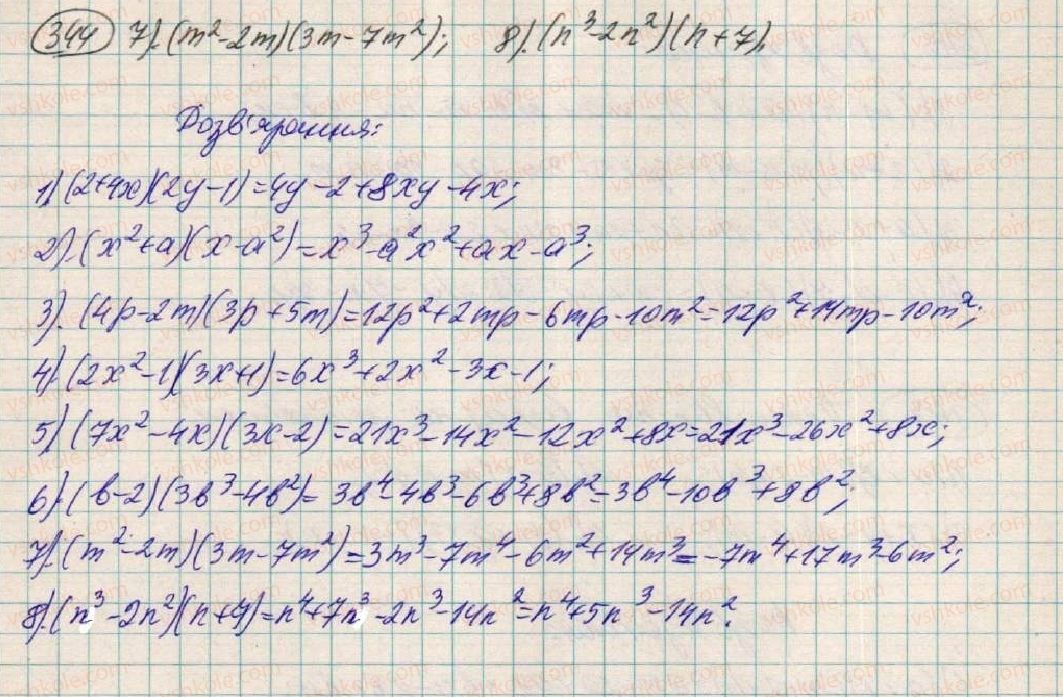 344 7). (m²-2m)(3m-7m²); 8). (n³-2n²)(n+7).
Розв'язання:
1) (2+4x)(2y-1)=4y-2+8xy-4x;
2). (x²+a)(x-a²)=x³-a²x²+ax-a³;
3). (4p-2m)(3p+5m)=12p²+2mp-6mp-10m²=12p²+14mp-10m²;
4) (2x²-1)(3x+1)=6x³+2x²-3x-1;
5) (7x²-4x)(3x-2)=21x³-14x²-12x²+8x=21x³-26x²+8x;
6). (b-2)(3b³-4b²)=3b⁴-4b³-6b³+8b²=3b⁴-10b³+8b²;
7). (m²-2m)(3m-7m²)=3m³-7m⁴-6m²+14m³=-7m⁴+17m³-6m²;
8). (n³-2n²)(n+7)=n⁴+7n³-2n³-14n²=n⁴+5n³-14n².